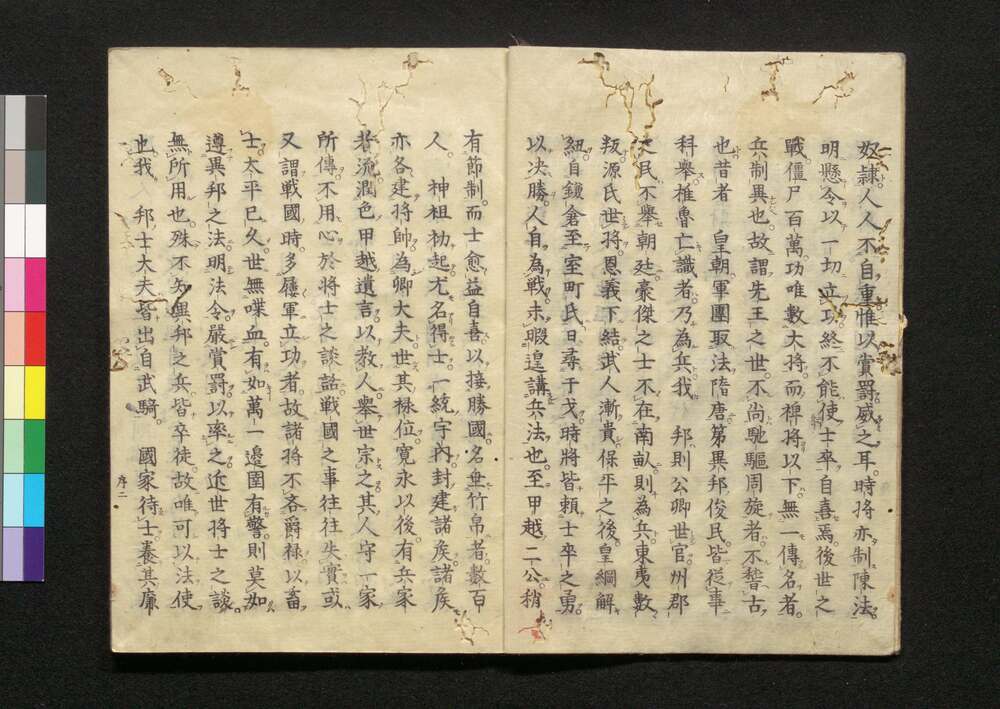 奴隷。人人不自重。惟以賞罰威之耳。時將亦制陳法。
明懸令以一切立功。終不能使士卒自喜焉。後世之
戰。僵尸百萬。功唯數大將。而裨將以下。無一傳名者。
兵制異也。故謂先王之世。不尚馳驅周旋者。不嵆古
也。昔者 皇朝軍團取法隋唐。第異邦俊民。皆從事
科舉。椎魯亡識者。乃為兵。我 邦則公卿世官。州郡
之民不舉朝廷。豪傑之士不在南畝。則為兵。東夷數
叛。源氏世將。恩義下結。武人漸貴。保平之後。皇綱解
紐。自鎌倉至室町氏。日尋干戈。時將皆頼士卒之勇。
以決勝。人自為戰。未暇遑講兵法也。至甲越二公。稍
有節制。而士愈益自喜。以接勝國。名垂竹帛者。數百
人。 神祖勃起。尤名得士。一統宇內。封建諸矦。諸矦
亦各建將帥。為卿大夫。世其祿位。寛永以後。有兵家
者流。潤色甲越遺言。以教人。舉世宗之。其人守一家
所傳。不用心於將士之談。話戰國之事。往往失實。或
又謂戰國時。多屢軍立功者。故諸將不吝爵祿。以畜
士。太平已久。世無喋血。有如萬一邊圉有警。則莫如
遵異邦之法。明法令。嚴賞罰。以率之。近世將士之談。
無所用也。殊不知異邦之兵。皆卒徒。故唯可以法使
也。我 邦士大夫。皆出自武騎。 國家待士。養其廉
序二